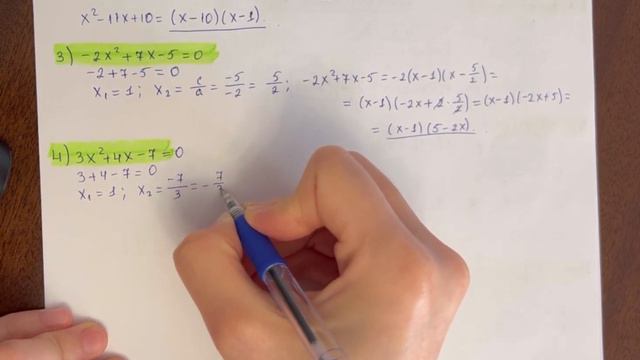 x² - 11x + 10 = (x - 10)(x - 1)
3) -2x² + 7x - 5 = 0
-2 + 7 - 5 = 0
x₁ = 1 ; x₂ = c/a = -5/-2 = 5/2 ; -2x² + 7x - 5 = -2(x - 1)(x - 5/2) =
= (x - 1)(-2x + 2 · 5/2) = (x - 1)(-2x + 5) =
= (x - 1)(5 - 2x)
4) 3x² + 4x - 7 = 0
3 + 4 - 7 = 0
x₁ = 1 ; x₂ = -7/3 = - 7/